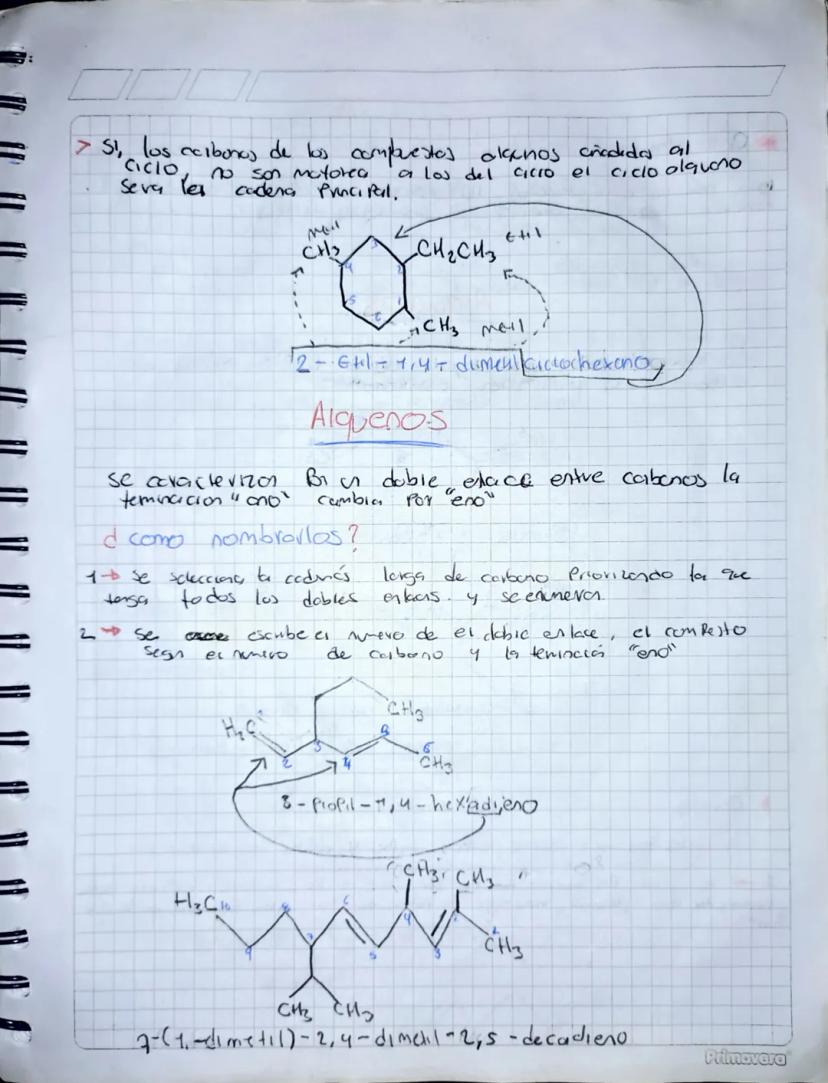 > Si, los carbonos de los compuestos alcanos añadidos al
ciclo, no son mayores a los del ciclo el ciclo alquano
sera la cadena principal.
metil
CH3
3
CH2CH3 Etil
4
2
5
1
6
CH3 metil
2-Etil-1,4-dimetil ciclohexano
Alquenos
Se caracterizan por un doble enlace entre carbonos la
teminacion "ano" cambia por "eno"
¿ como nombrarlos?
1→ Se selecciona la cadnás larga de carbono Priorizando la que
tenga todos los dobles enlaces. y se enumera.
2 → Se escribe el numero de el doble enlace, el compesto
segn el numero de carbono y la teminació "eno"
CH3
H2C 1
3
5
6
2
4
CH3
3-Propil-1,4-hexadieno
CH3 CH3
H3C 10
8
6
4
2
7
1
9
5
3
CH3
CH3 CH3
7-(1,-dimetil)-2,4-dimetil-2,5-decadieno
Primavera